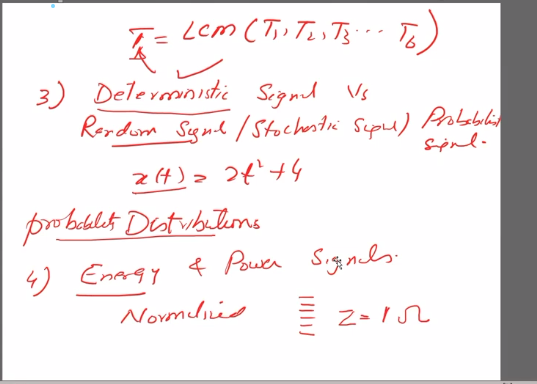 T = LCM (T₁, T₂, T₃ ... T₆)
3) Deterministic Signal Vs
Random Signal / Stochastic Signal) Probabilist
signal.
x(t) = 2t² + 4
probabilit Distributions
4) Energy & Power Signals.
Normalized Z = 1 Ω